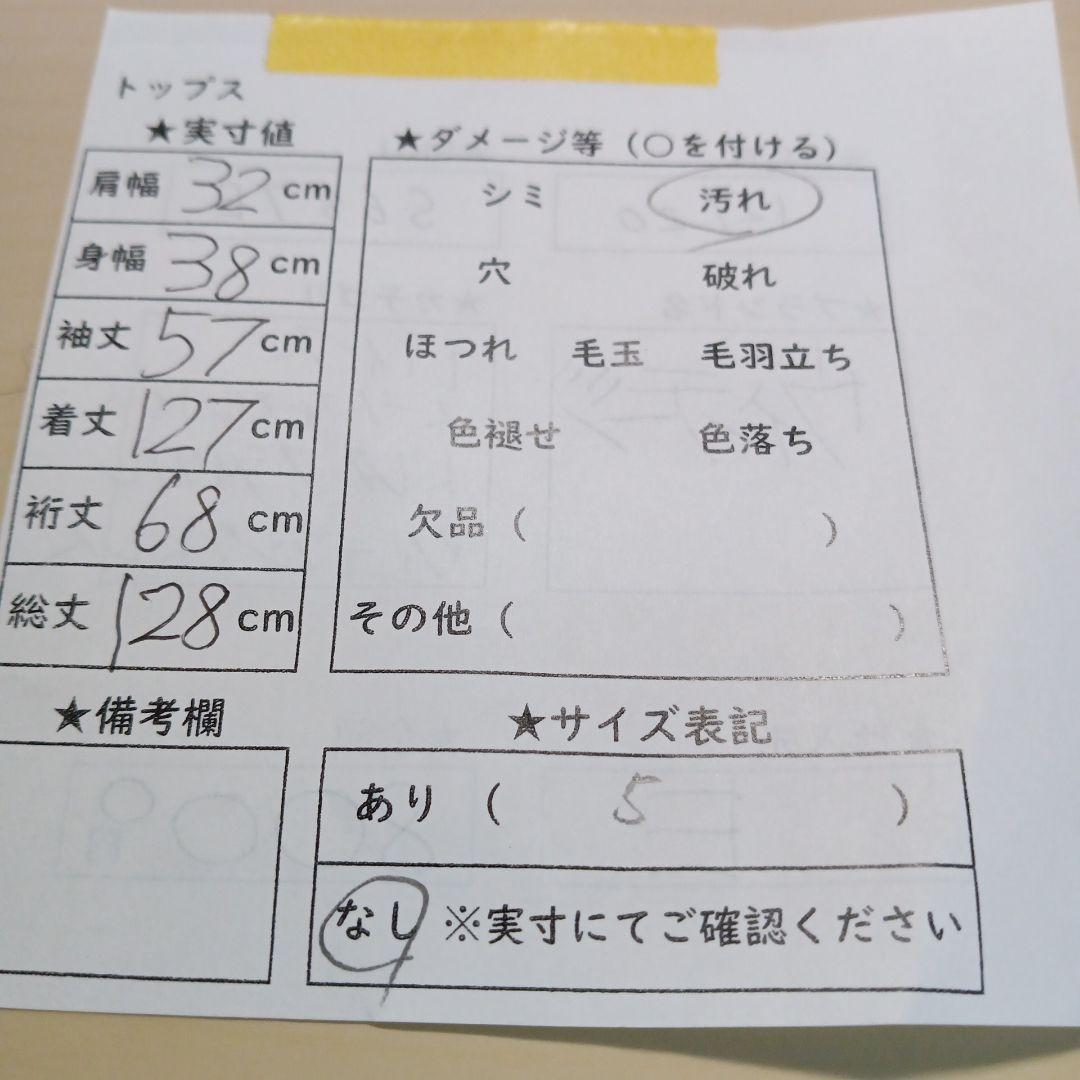 トップス
★実寸値
肩幅 32 cm
身幅 38 cm
袖丈 57 cm
着丈 127 cm
裄丈 68 cm
総丈 128 cm
★ダメージ等（○を付ける）
シミ 汚れ
穴 破れ
ほつれ 毛玉 毛羽立ち
色褪せ 色落ち
欠品（ ）
その他（ ）
★備考欄
★サイズ表記
あり（ 5 ）
なし ※実寸にてご確認ください